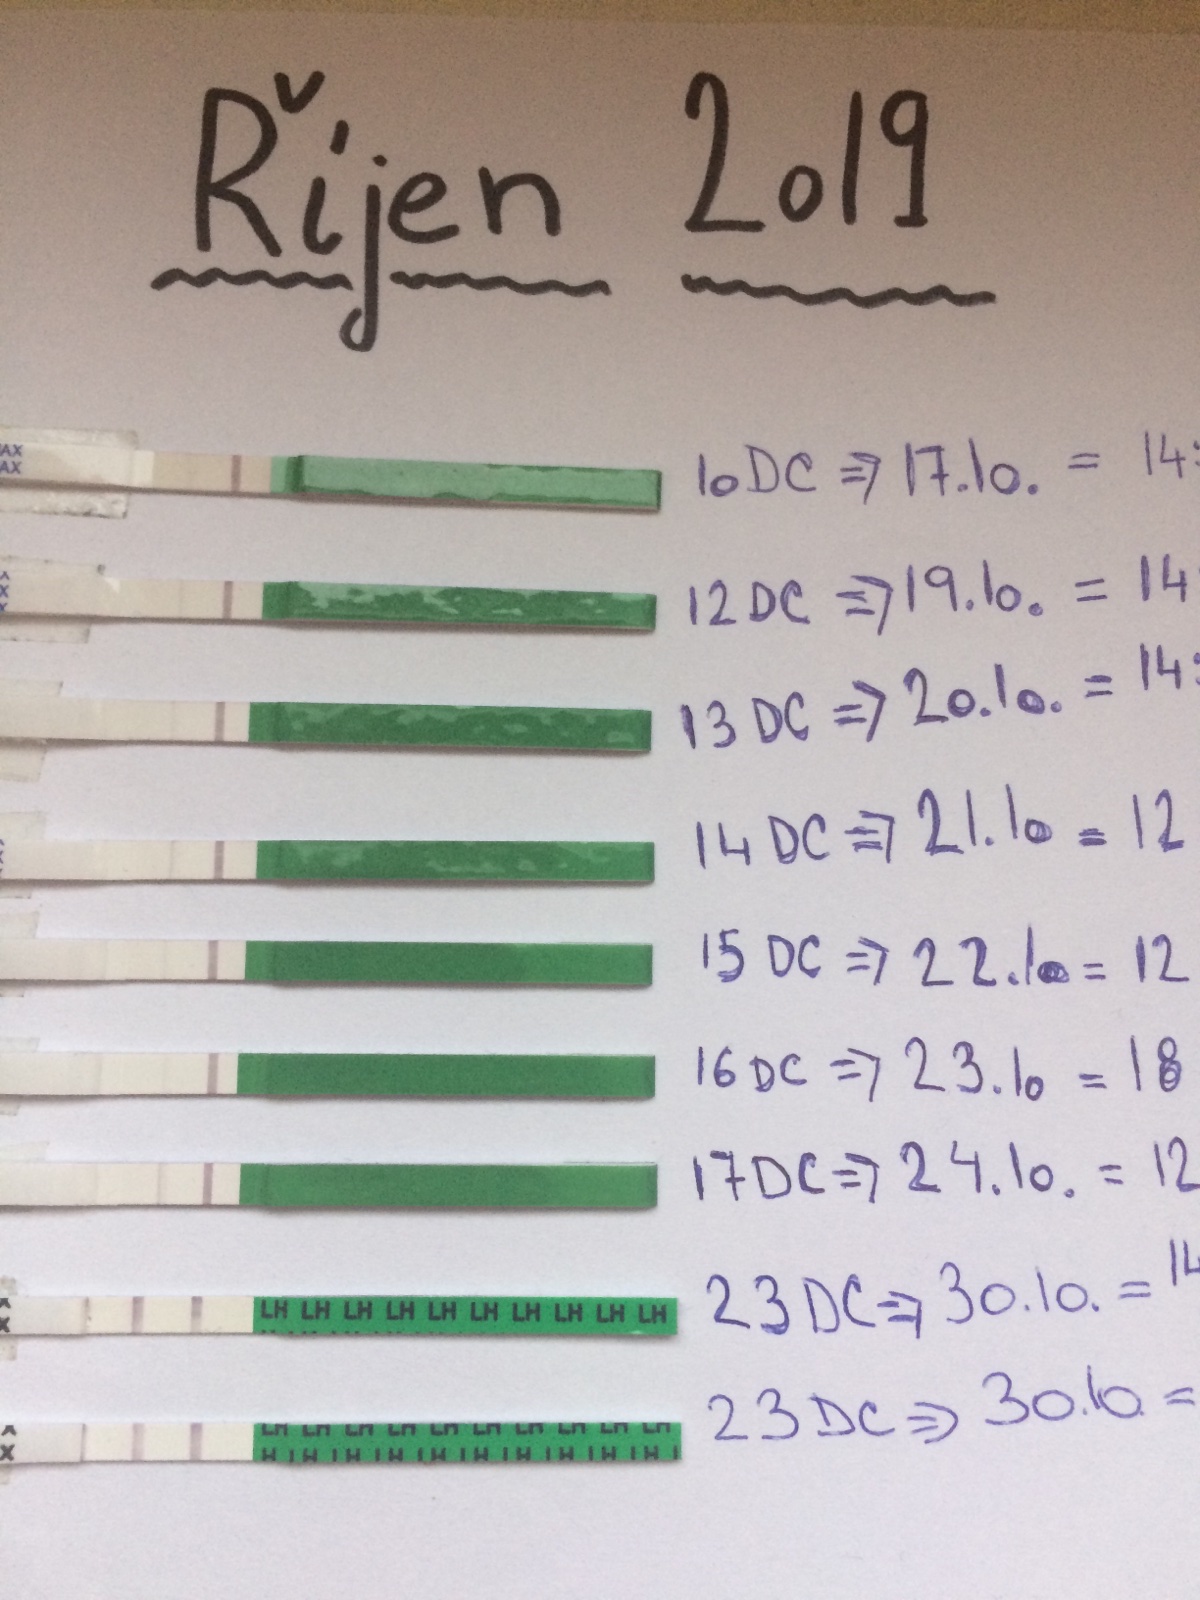 Říjen 2019
AX
AX
10 DC ⇒ 17.10. = 14:
X
X
12 DC ⇒ 19.10. = 14:
13 DC ⇒ 20.10. = 14:
14 DC ⇒ 21.10 = 12
15 DC ⇒ 22.10 = 12
16 DC ⇒ 23.10 = 18
17 DC ⇒ 24.10. = 12
X
LH LH LH LH LH LH LH LH LH LH
23 DC ⇒ 30.10. = 14
X
LH LH LH LH LH LH LH LH LH LH
23 DC ⇒ 30.10. =